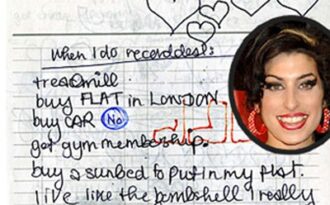 when I do record deal:
treadmill
buy FLAT in LONDON
buy CAR No
get gym membership.
buy a sunbed to put in my flat.
live like the bombshell I really